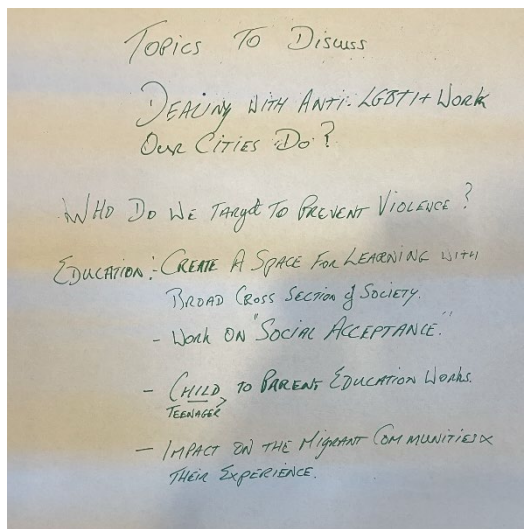 Topics To Discuss
Dealing With Anti-LGBTI+ Work
Our Cities Do?
Who Do We Target To Prevent Violence?
Education: Create A Space For Learning with
Broad Cross Section of Society.
- Work on "Social Acceptance."
- Child, to Parent Education Works.
Teenager >
- Impact on the Migrant Communities &
their Experience.